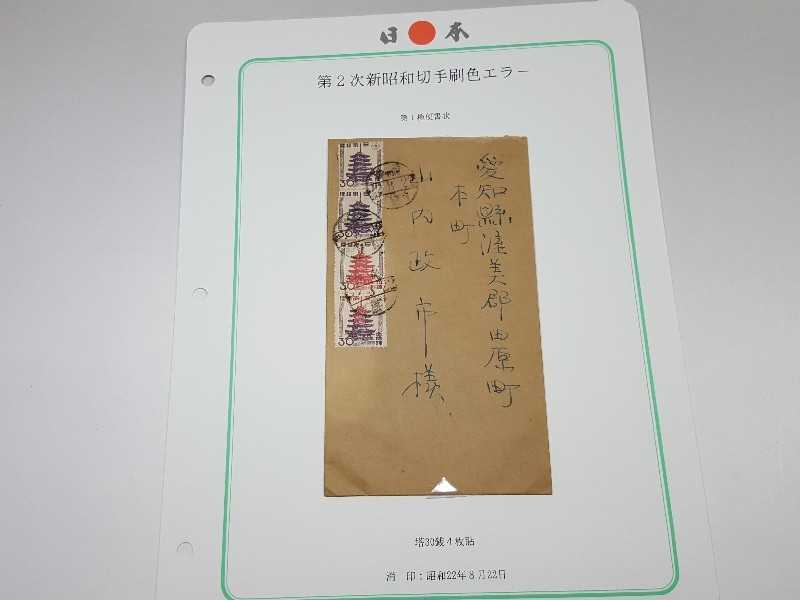 日 本
第２次新昭和切手刷色エラー
第１種便書状
愛知縣渥美郡田原町
本町
山内政市様
30
30
30
30
塔30銭４枚貼
消　印：昭和22年８月22日